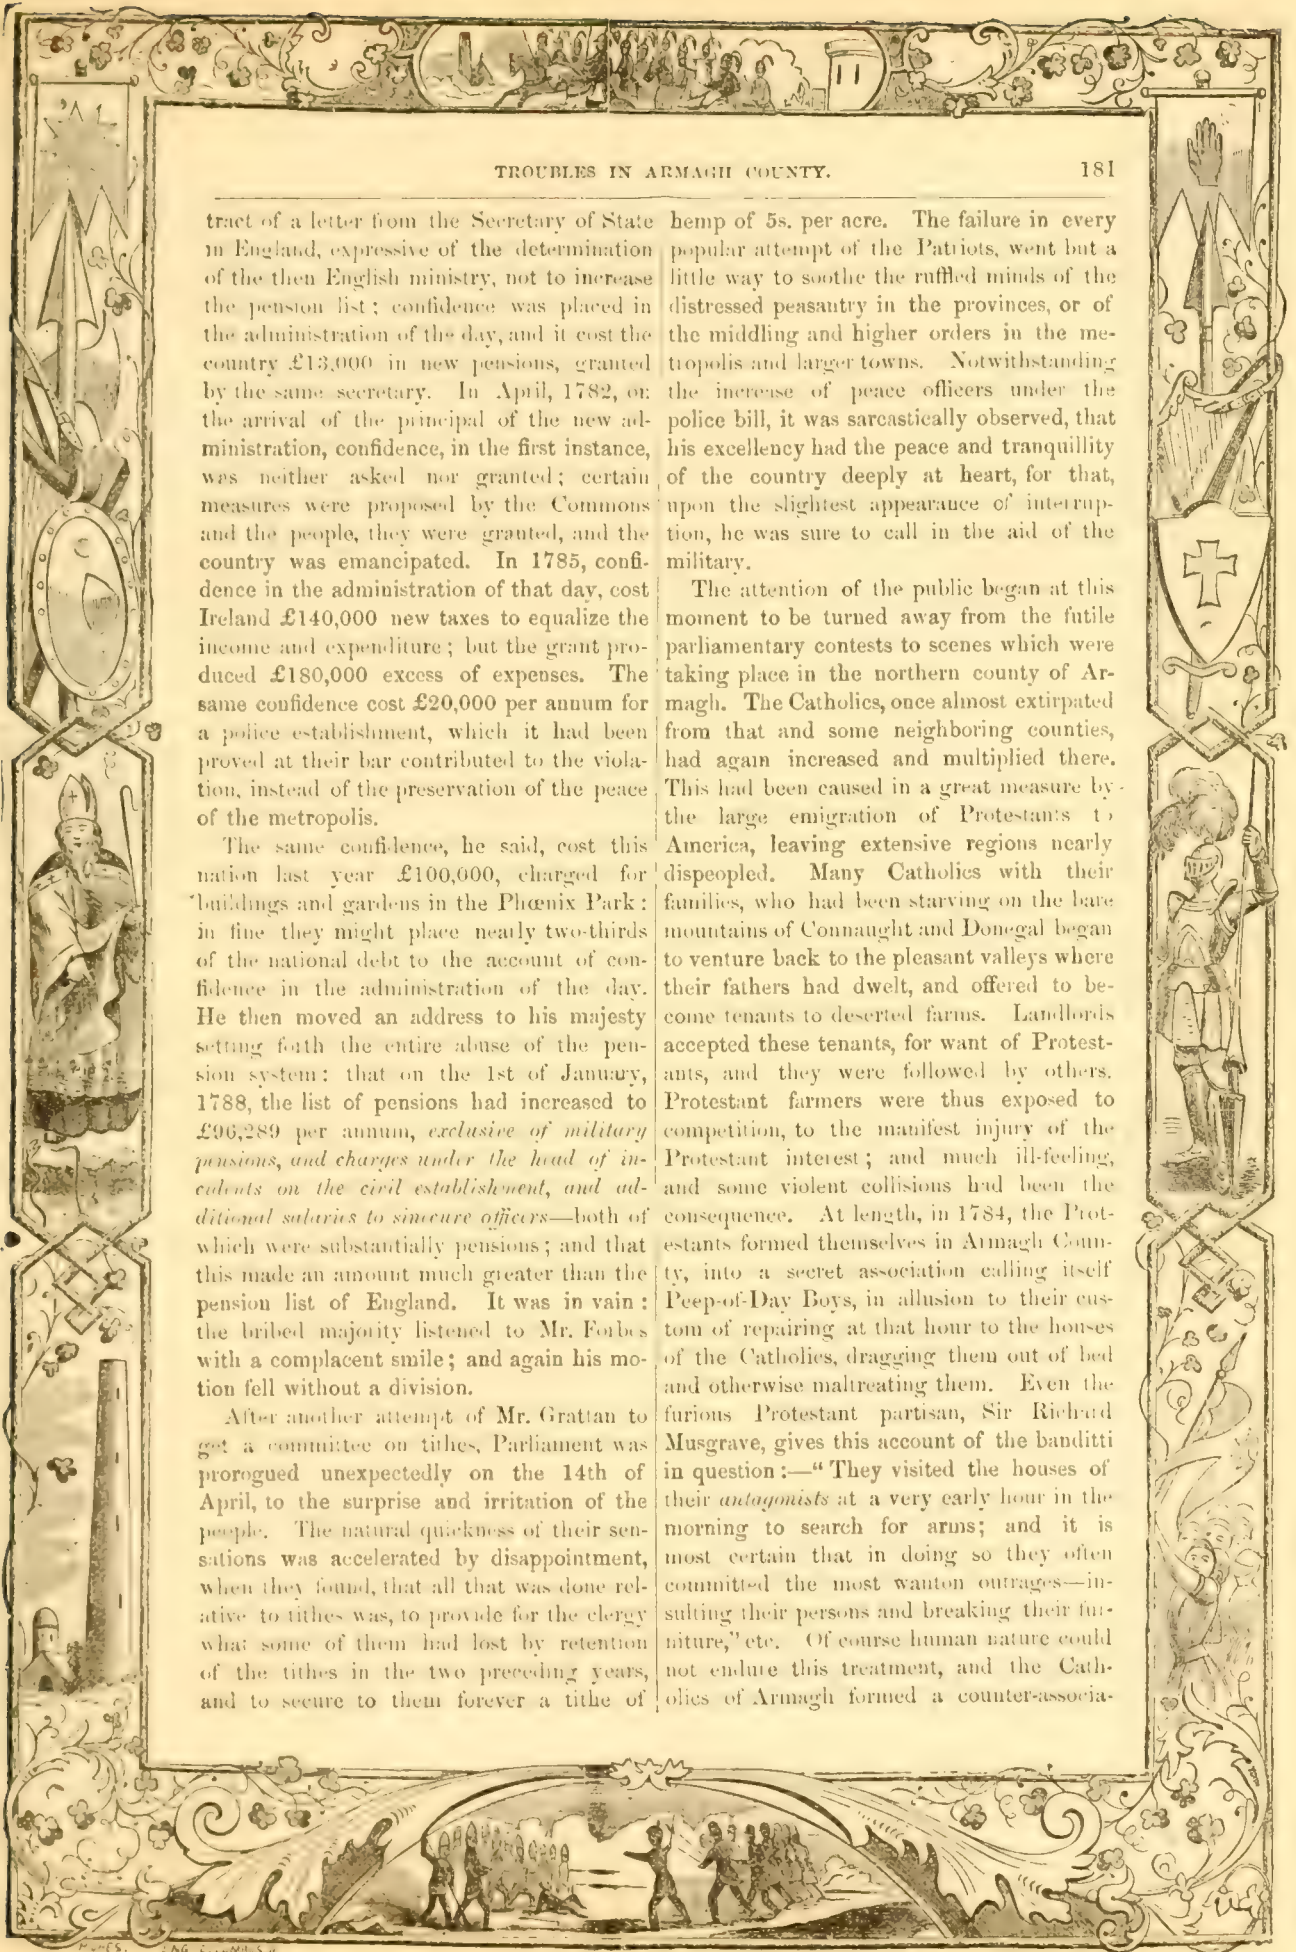 TROUBLES IN ARMAGH COUNTY.
181
tract of a letter from the Secretary of State
in England, expressive of the determination
of the then English ministry, not to increase
the pension list; confidence was placed in
the administration of the day, and it cost the
country £13,000 in new pensions, granted
by the same secretary. In April, 1782, on
the arrival of the principal of the new ad-
ministration, confidence, in the first instance,
was neither asked nor granted; certain
measures were proposed by the Commons
and the people, they were granted, and the
country was emancipated. In 1785, confi-
dence in the administration of that day, cost
Ireland £140,000 new taxes to equalize the
income and expenditure; but the grant pro-
duced £180,000 excess of expenses. The
same confidence cost £20,000 per annum for
a police establishment, which it had been
proved at their bar contributed to the viola-
tion, instead of the preservation of the peace
of the metropolis.
The same confidence, he said, cost this
nation last year £100,000, charged for
buildings and gardens in the Phœnix Park:
in fine they might place nearly two-thirds
of the national debt to the account of con-
fidence in the administration of the day.
He then moved an address to his majesty
setting forth the entire abuse of the pen-
sion system: that on the 1st of January,
1788, the list of pensions had increased to
£96,289 per annum, exclusive of military
pensions, and charges under the head of in-
cidents on the civil establishment, and ad-
ditional salaries to sinecure officers—both of
which were substantially pensions; and that
this made an amount much greater than the
pension list of England. It was in vain:
the bribed majority listened to Mr. Forbes
with a complacent smile; and again his mo-
tion fell without a division.
After another attempt of Mr. Grattan to
get a committee on tithes, Parliament was
prorogued unexpectedly on the 14th of
April, to the surprise and irritation of the
people. The natural quickness of their sen-
sations was accelerated by disappointment,
when they found, that all that was done rel-
ative to tithes was, to provide for the clergy
what some of them had lost by retention
of the tithes in the two preceding years,
and to secure to them forever a tithe of
hemp of 5s. per acre. The failure in every
popular attempt of the Patriots, went but a
little way to soothe the ruffled minds of the
distressed peasantry in the provinces, or of
the middling and higher orders in the me-
tropolis and larger towns. Notwithstanding
the increase of peace officers under the
police bill, it was sarcastically observed, that
his excellency had the peace and tranquillity
of the country deeply at heart, for that,
upon the slightest appearance of interrup-
tion, he was sure to call in the aid of the
military.
The attention of the public began at this
moment to be turned away from the futile
parliamentary contests to scenes which were
taking place in the northern county of Ar-
magh. The Catholics, once almost extirpated
from that and some neighboring counties,
had again increased and multiplied there.
This had been caused in a great measure by
the large emigration of Protestants to
America, leaving extensive regions nearly
dispeopled. Many Catholics with their
families, who had been starving on the bare
mountains of Connaught and Donegal began
to venture back to the pleasant valleys where
their fathers had dwelt, and offered to be-
come tenants to deserted farms. Landlords
accepted these tenants, for want of Protest-
ants, and they were followed by others.
Protestant farmers were thus exposed to
competition, to the manifest injury of the
Protestant interest; and much ill-feeling,
and some violent collisions had been the
consequence. At length, in 1784, the Prot-
estants formed themselves in Armagh Coun-
ty, into a secret association calling itself
Peep-of-Day Boys, in allusion to their cus-
tom of repairing at that hour to the houses
of the Catholics, dragging them out of bed
and otherwise maltreating them. Even the
furious Protestant partisan, Sir Richard
Musgrave, gives this account of the banditti
in question:—“They visited the houses of
their antagonists at a very early hour in the
morning to search for arms; and it is
most certain that in doing so they often
committed the most wanton outrages—in-
sulting their persons and breaking their fur-
niture,” etc. Of course human nature could
not endure this treatment, and the Cath-
olics of Armagh formed a counter-associa-